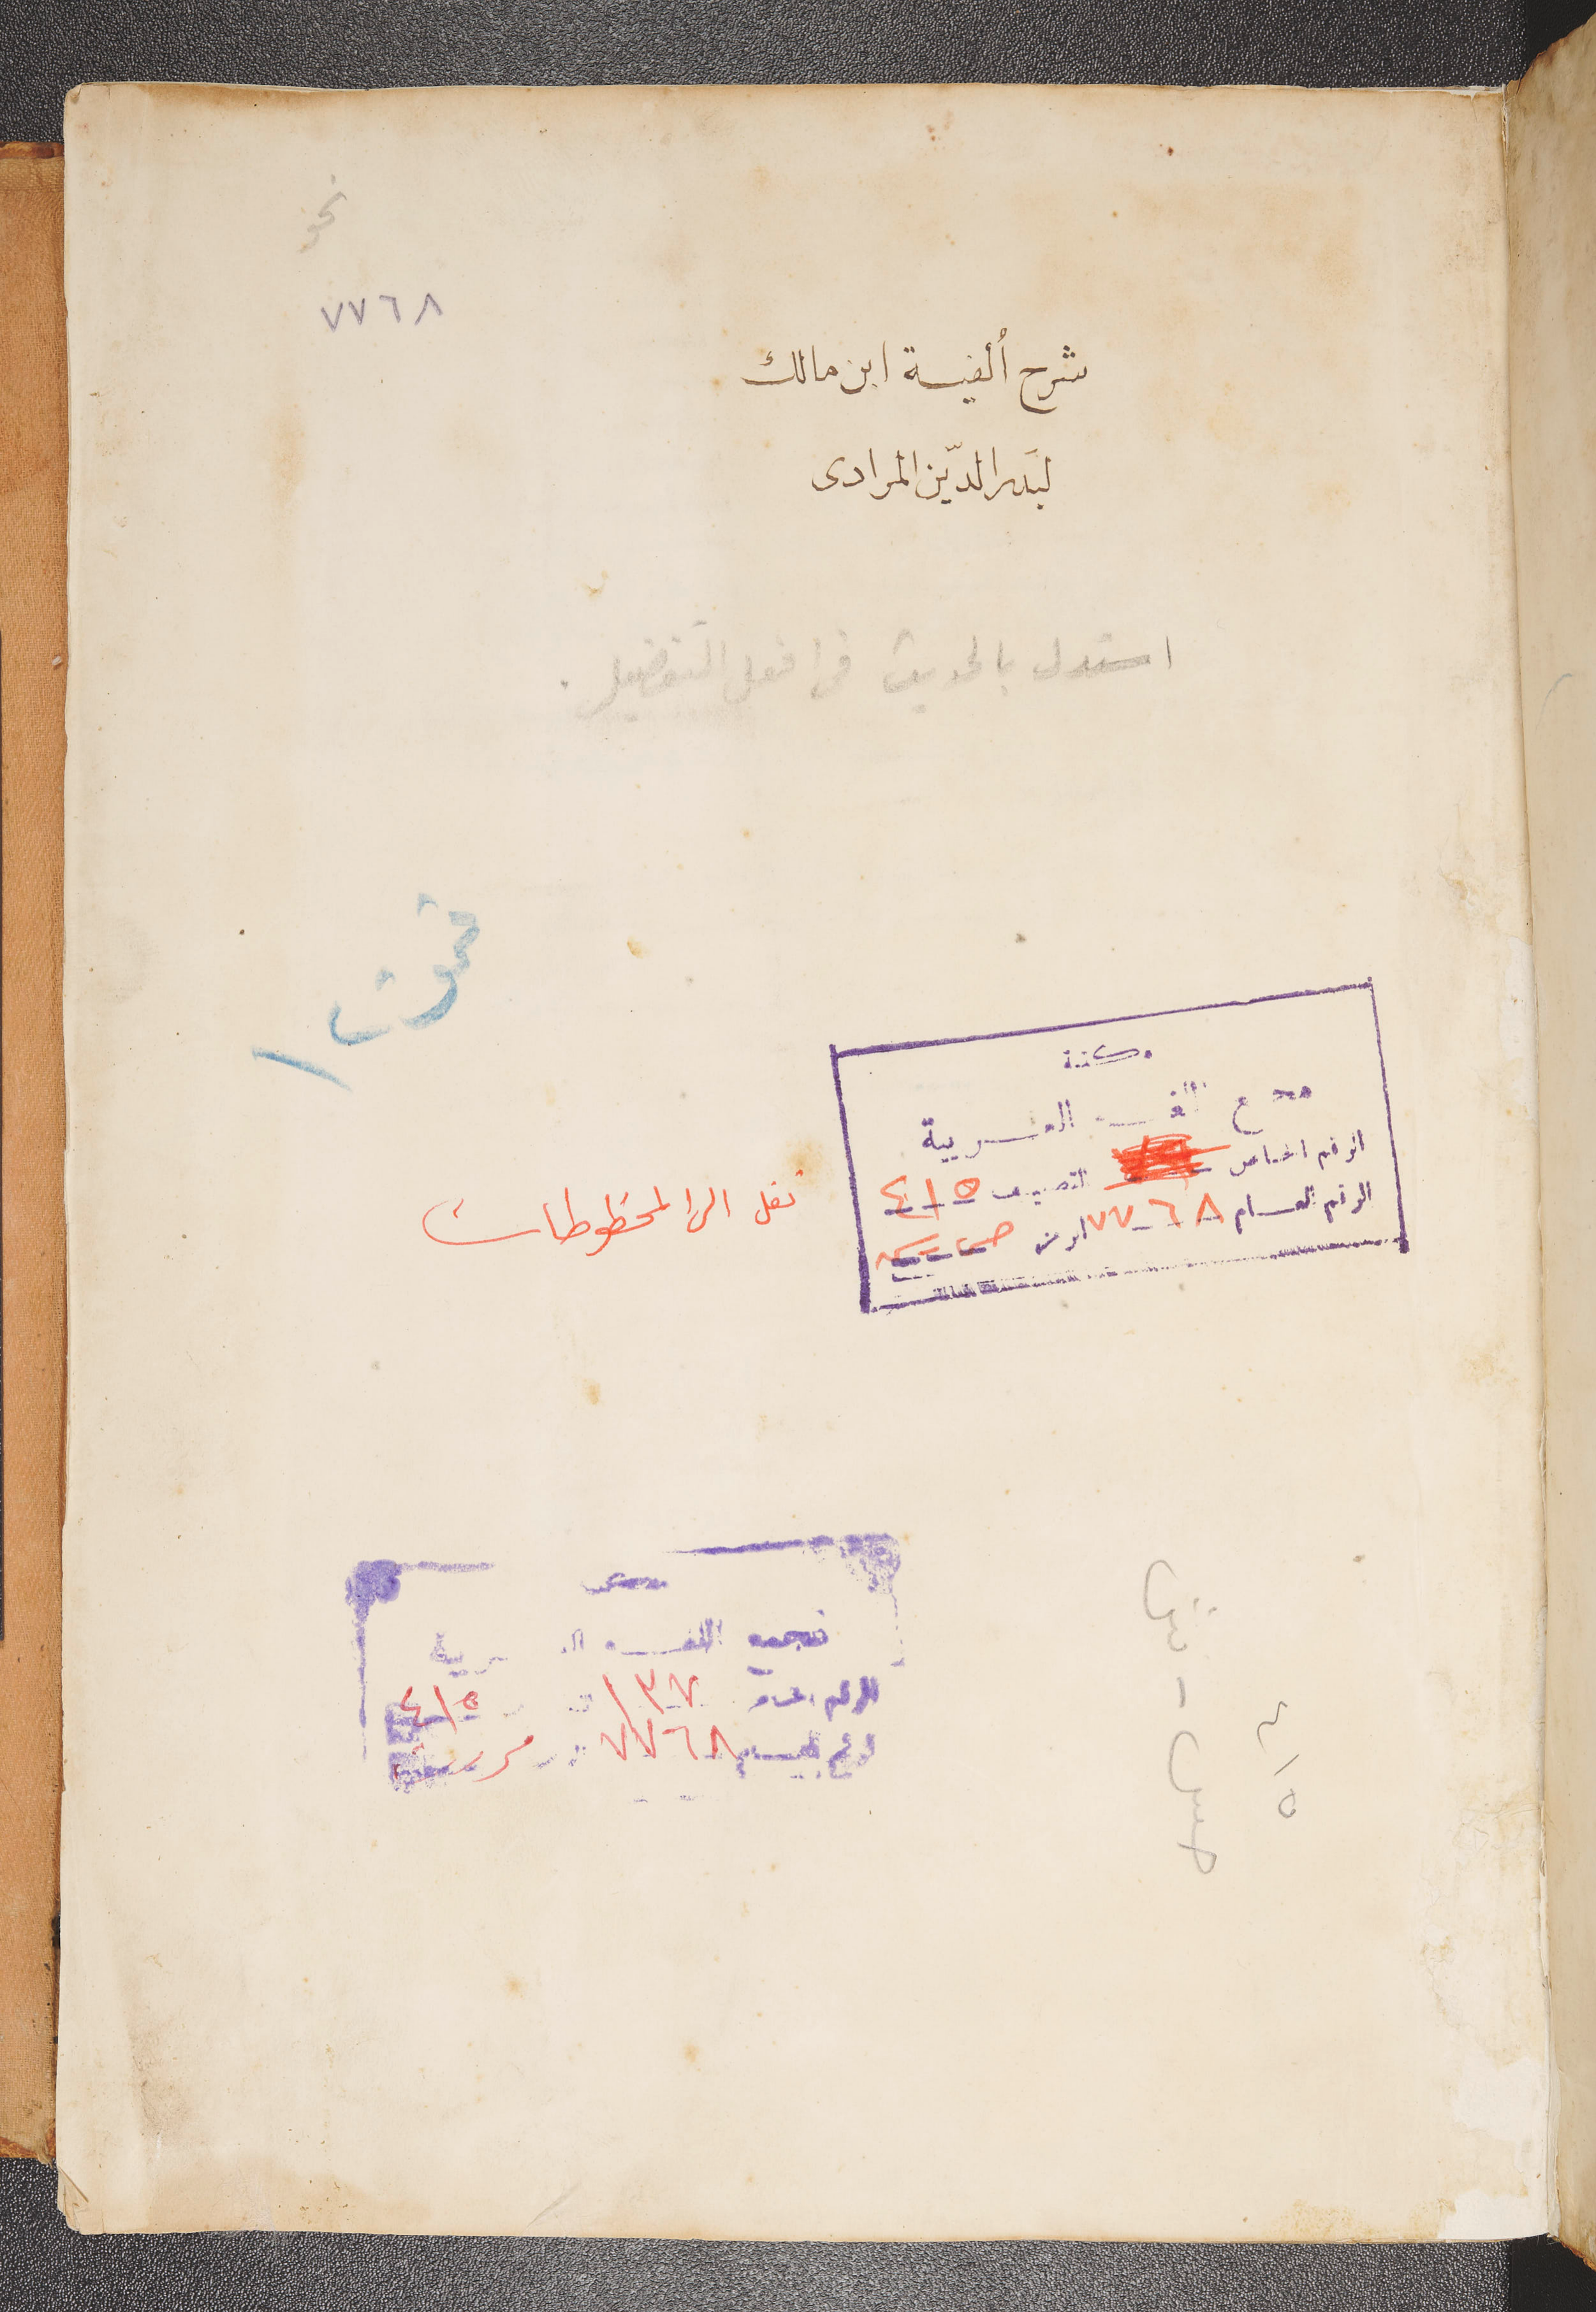 نحو
٧٧٦٨
شرح ألفية ابن مالك
لبَدر الدّين المرادى
استدل بالحديث فى افعل التفضيل .
مكتبة
مجمع اللغـة العـربية
الرقم الخاص التصنيف ٤١٥
الرقم العـام ٧٧٦٨
نقل الى المخطوطات
مجمع اللغـة العـربية
الرقم الخاص ١٣٧ ٤١٥
الرقم العـام ٧٧٦٨
٤١٥